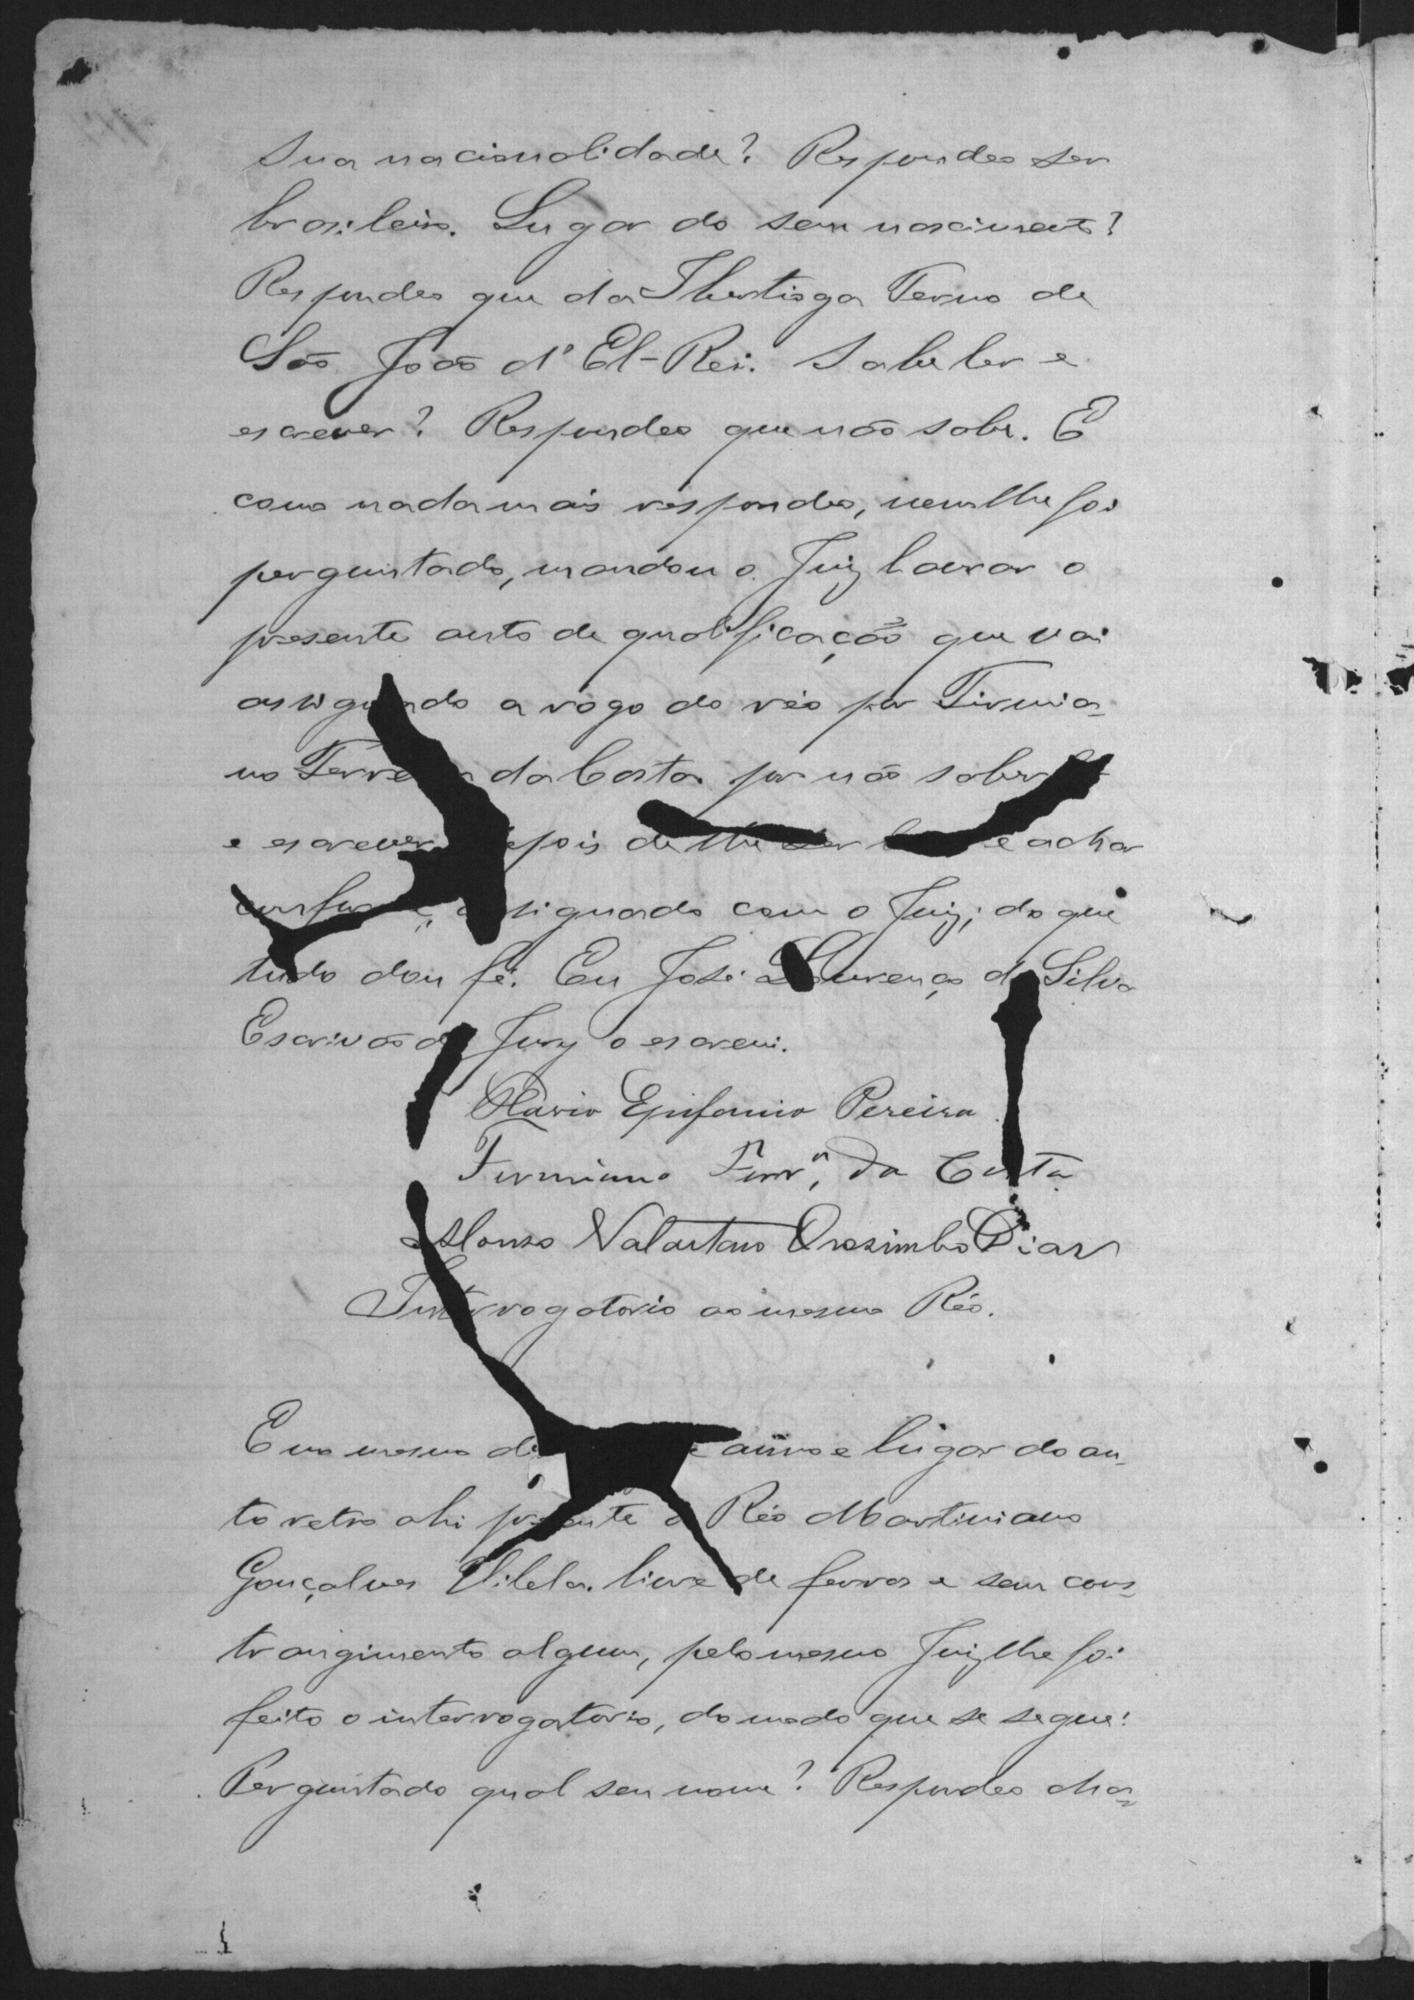 Sua nacionalidade? Respondeo ser
brasileiro. Lugar do seu nascimento?
Respondeo que da Ibertioga Termo de
São João d'El-Rei. Sabe ler e
escrever? Respondeo que não sabe. E
como nada mais respondeo, nem lhe foi
perguntado, mandou o Juiz lavrar o
presente auto de qualificação que vai
assignado a rogo do réo por Firmia-
no Ferreira da Costa por não saber
e escrever depois de lhe ser e achar
conforme, assignado com o Juiz; do que
tudo dou fé. Eu José Lourenço da Silva
Escrivão do Jury o escrevi.
Olavio Epifanio Pereira
Firmiano Ferrª, da Costa
Alonso Orozimbo Dias
Interrogatorio ao mesmo Réo.
E no mesmo anno e lugar do au-
to retro ahi presente o Réo Martiniano
Gonçalves Vilela. livre de ferros e sem cons-
trangimento algum, pelo mesmo Juiz lhe foi
feito o interrogatorio, do modo que se segue:
Perguntado qual seu nome? Respondeo cha-